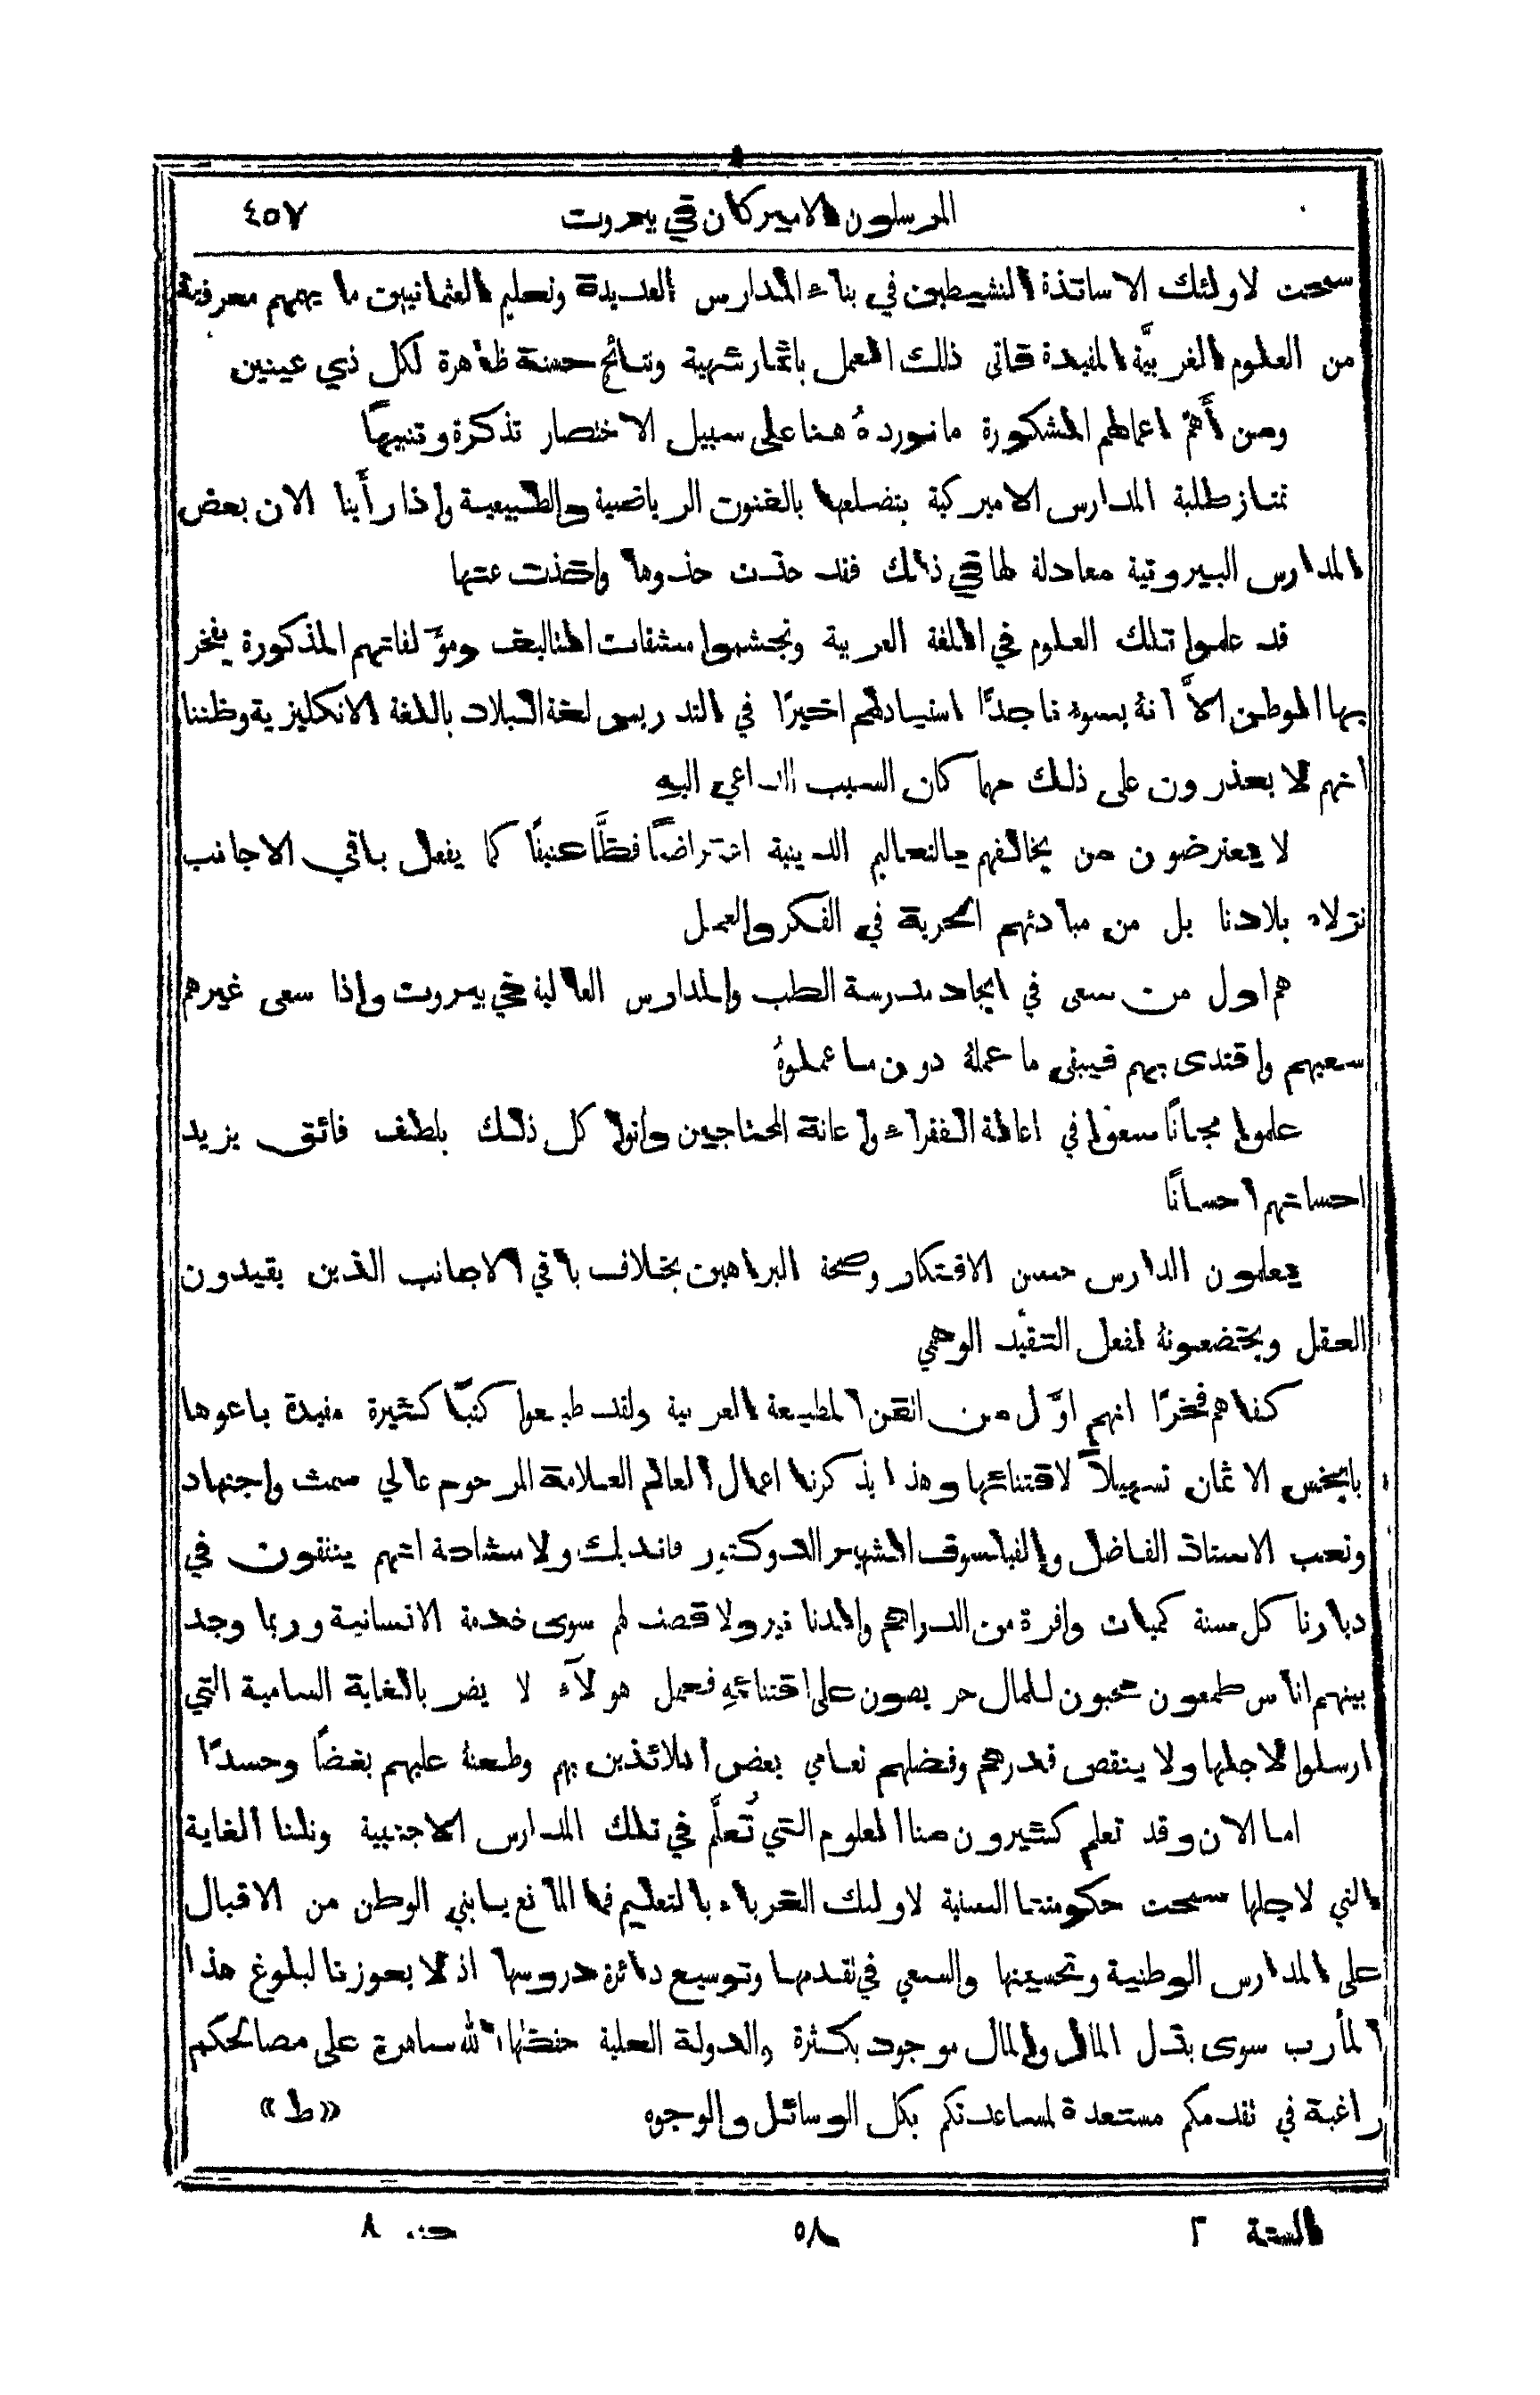 المرسلون الاميركان في بيروت ٤٥٧
سمحت لاولئك الاساتذة النشيطين في بناء المدارس العديدة وتعليم العثمانيين ما يهمهم معرفته
من العلوم الغربيَّة المفيدة فاتى ذلك العمل باثمار شهية ونتائج حسنة ظاهرة لكل ذي عينين
ومن أَهمّ اعمالهم المشكورة ما نوردهُ هنا على سبيل الاختصار تذكرة وتنبيهًا
تمتاز طلبة المدارس الاميركية بتضلعها بالفنون الرياضية والطبيعية واذا رأَينا الان بعض
المدارس البيروتية معادلة لها في ذلك فقد حذت حذوها واخذت عنها
قد علموا تلك العلوم في اللغة العربية وتجشموا مشقات التاليف ومؤَلفاتهم المذكورة يفخر
بها الوطن الاَّ انهُ يسوءنا جدًّا استبدالهم اخيرًا في التدريس لغة البلاد باللغة الانكليزية وظننا
انهم لا يعذرون على ذلك مهما كان السبب الداعي اليهِ
لا يعترضون من يخالفهم بالتعاليم الدينية اعتراضًا فظًّا عنيفًا كما يفعل باقي الاجانب
نزلاء بلادنا بل من مبادئهم الحرية في الفكر والعمل
هم اول من سعى في ايجاد مدرسة الطب والمدارس العالية في بيروت واذا سعى غيرهم
سعيهم واقتدى بهم فيبقى ما عملهُ دون ما عملوهُ
علموا مجانًا سعوا في اعالة الفقراء واعانة المحتاجين واتوا كل ذلك بلطف فائق يزيد
احسانهم احسانًا
يعلمون الدارس حسن الافتكار وصحة البراهين بخلاف باقي الاجانب الذين يقيدون
العقل ويخضعونهُ لفعل التقيُّد الوهمي
كفاهم فخرًا انهم اوَّل من اتقن المطبعة العربية ولقد طبعوا كتبًا كثيرة مفيدة باعوها
بابخس الاثمان تسهيلاً لاقتنائها وهذا يذكرنا اعمال العالم العلامة المرحوم عالي سمث واجتهاد
وتعب الاستاذ الفاضل والفيلسوف الشهير الدوكتور فانديك ولا مشاحة انهم ينفقون في
ديارنا كل سنة كميات وافرة من الدراهم والدنانير ولا قصد لهم سوى خدمة الانسانية وربما وجد
بينهم اناس طمعون محبون للمال حريصون على اقتنائهِ فعمل هولآء لا يضر بالغاية السامية التي
ارسلوا لاجلها ولا ينقص قدرهم وفضلهم تعامي بعض اللائذين بهم وطعنهُ عليهم بغضًا وحسدًا
اما الان وقد تعلم كثيرون منا العلوم التي تُعلَّم في تلك المدارس الاجنبية ونلنا الغاية
التي لاجلها سمحت حكومتنا السنية لاولئك الغرباء بالتعليم فما المانع يا بني الوطن من الاقبال
على المدارس الوطنية وتحسينها والسعي في تقدمها وتوسيع دائرة دروسها اذ لا يعوزنا لبلوغ هذا
المأرب سوى بذل المال والمال موجود بكثرة والدولة العلية حفظها الله ساهرة على مصالحكم
راغبة في تقدمكم مستعدة لمساعدتكم بكل الوسائل والوجوه «ط»
السنة ٢ ٥٨ ج ٨